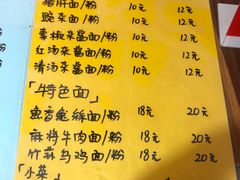 猪肝面/粉 10元 12元
豌杂面/粉 10元 12元
青椒杂酱面/粉 10元 12元
红汤杂酱面/粉 10元 12元
清汤杂酱面/粉 10元 12元
「特色面」
鱼香肉丝面/粉 18元 20元
麻将牛肉面/粉 18元 20元
竹荪乌鸡面/粉 18元 20元
「小菜」